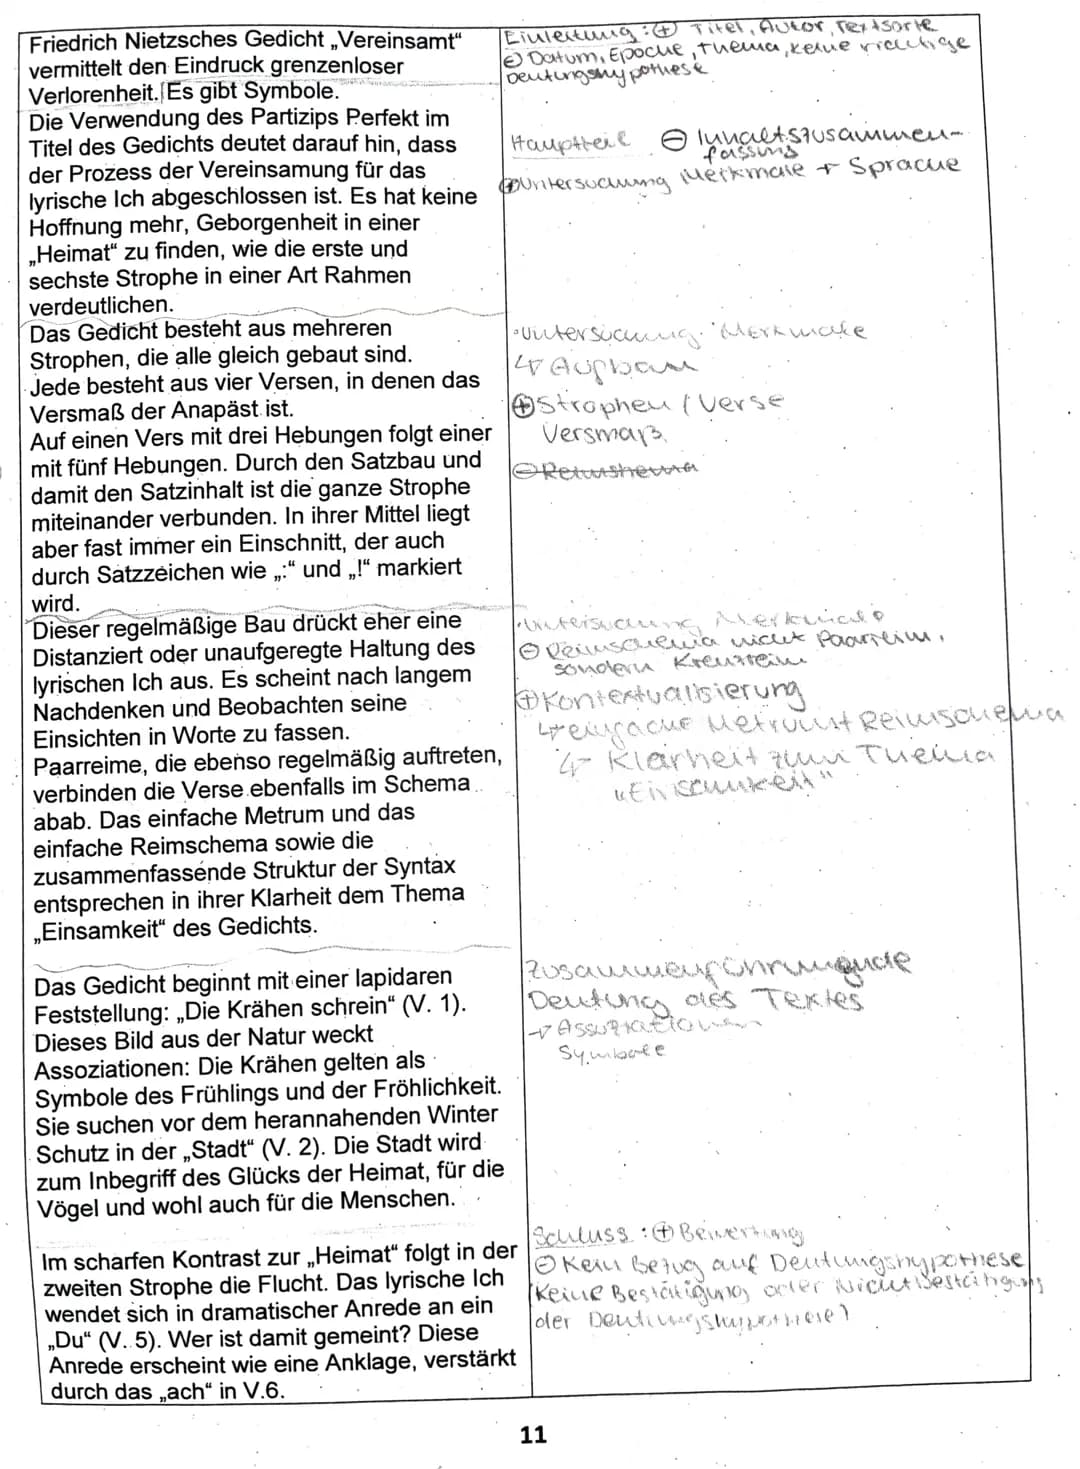 Friedrich Nietzsches Gedicht „Vereinsamt“
vermittelt den Eindruck grenzenloser
Verlorenheit. Es gibt Symbole.
Die Verwendung des Partizips Perfekt im
Titel des Gedichts deutet darauf hin, dass
der Prozess der Vereinsamung für das
lyrische Ich abgeschlossen ist. Es hat keine
Hoffnung mehr, Geborgenheit in einer
„Heimat“ zu finden, wie die erste und
sechste Strophe in einer Art Rahmen
verdeutlichen.
Einleitung: ⊕ Titel, Autor, Textsorte
⊖ Datum, Epoche, Thema, keine richtige
Deutungshypothese
Hauptteil ⊖ Inhaltszusammen-
fassung
⊕ Untersuchung Merkmale + Sprache
Das Gedicht besteht aus mehreren
Strophen, die alle gleich gebaut sind.
Jede besteht aus vier Versen, in denen das
Versmaß der Anapäst ist.
Auf einen Vers mit drei Hebungen folgt einer
mit fünf Hebungen. Durch den Satzbau und
damit den Satzinhalt ist die ganze Strophe
miteinander verbunden. In ihrer Mittel liegt
aber fast immer ein Einschnitt, der auch
durch Satzzeichen wie „:“ und „!“ markiert
wird.
• Untersuchung Merkmale
↳ Aufbau
⊕ Strophen / Verse
Versmaß
⊖ Reimshema
Dieser regelmäßige Bau drückt eher eine
Distanziert oder unaufgeregte Haltung des
lyrischen Ich aus. Es scheint nach langem
Nachdenken und Beobachten seine
Einsichten in Worte zu fassen.
Paarreime, die ebenso regelmäßig auftreten,
verbinden die Verse ebenfalls im Schema
abab. Das einfache Metrum und das
einfache Reimschema sowie die
zusammenfassende Struktur der Syntax
entsprechen in ihrer Klarheit dem Thema
„Einsamkeit“ des Gedichts.
• Untersuchung Merkmale
⊖ Reimschema nicht Paarreim,
sondern Kreuzreim
⊕ Kontextualisierung
↳ einfache Metrum + Reimschema
↳ Klarheit zum Thema
„Einsamkeit“
Das Gedicht beginnt mit einer lapidaren
Feststellung: „Die Krähen schrein“ (V. 1).
Dieses Bild aus der Natur weckt
Assoziationen: Die Krähen gelten als
Symbole des Frühlings und der Fröhlichkeit.
Sie suchen vor dem herannahenden Winter
Schutz in der „Stadt“ (V. 2). Die Stadt wird
zum Inbegriff des Glücks der Heimat, für die
Vögel und wohl auch für die Menschen.
Zusammenführende
Deutung des Textes
→ Assoziationen
Symbole
Im scharfen Kontrast zur „Heimat“ folgt in der
zweiten Strophe die Flucht. Das lyrische Ich
wendet sich in dramatischer Anrede an ein
„Du“ (V. 5). Wer ist damit gemeint? Diese
Anrede erscheint wie eine Anklage, verstärkt
durch das „ach“ in V.6.
Schluss: ⊕ Bewertung
⊖ Kein Bezug auf Deutungshypothese
(Keine Bestätigung oder Nichtbestätigung
der Deutungshypothese)
11